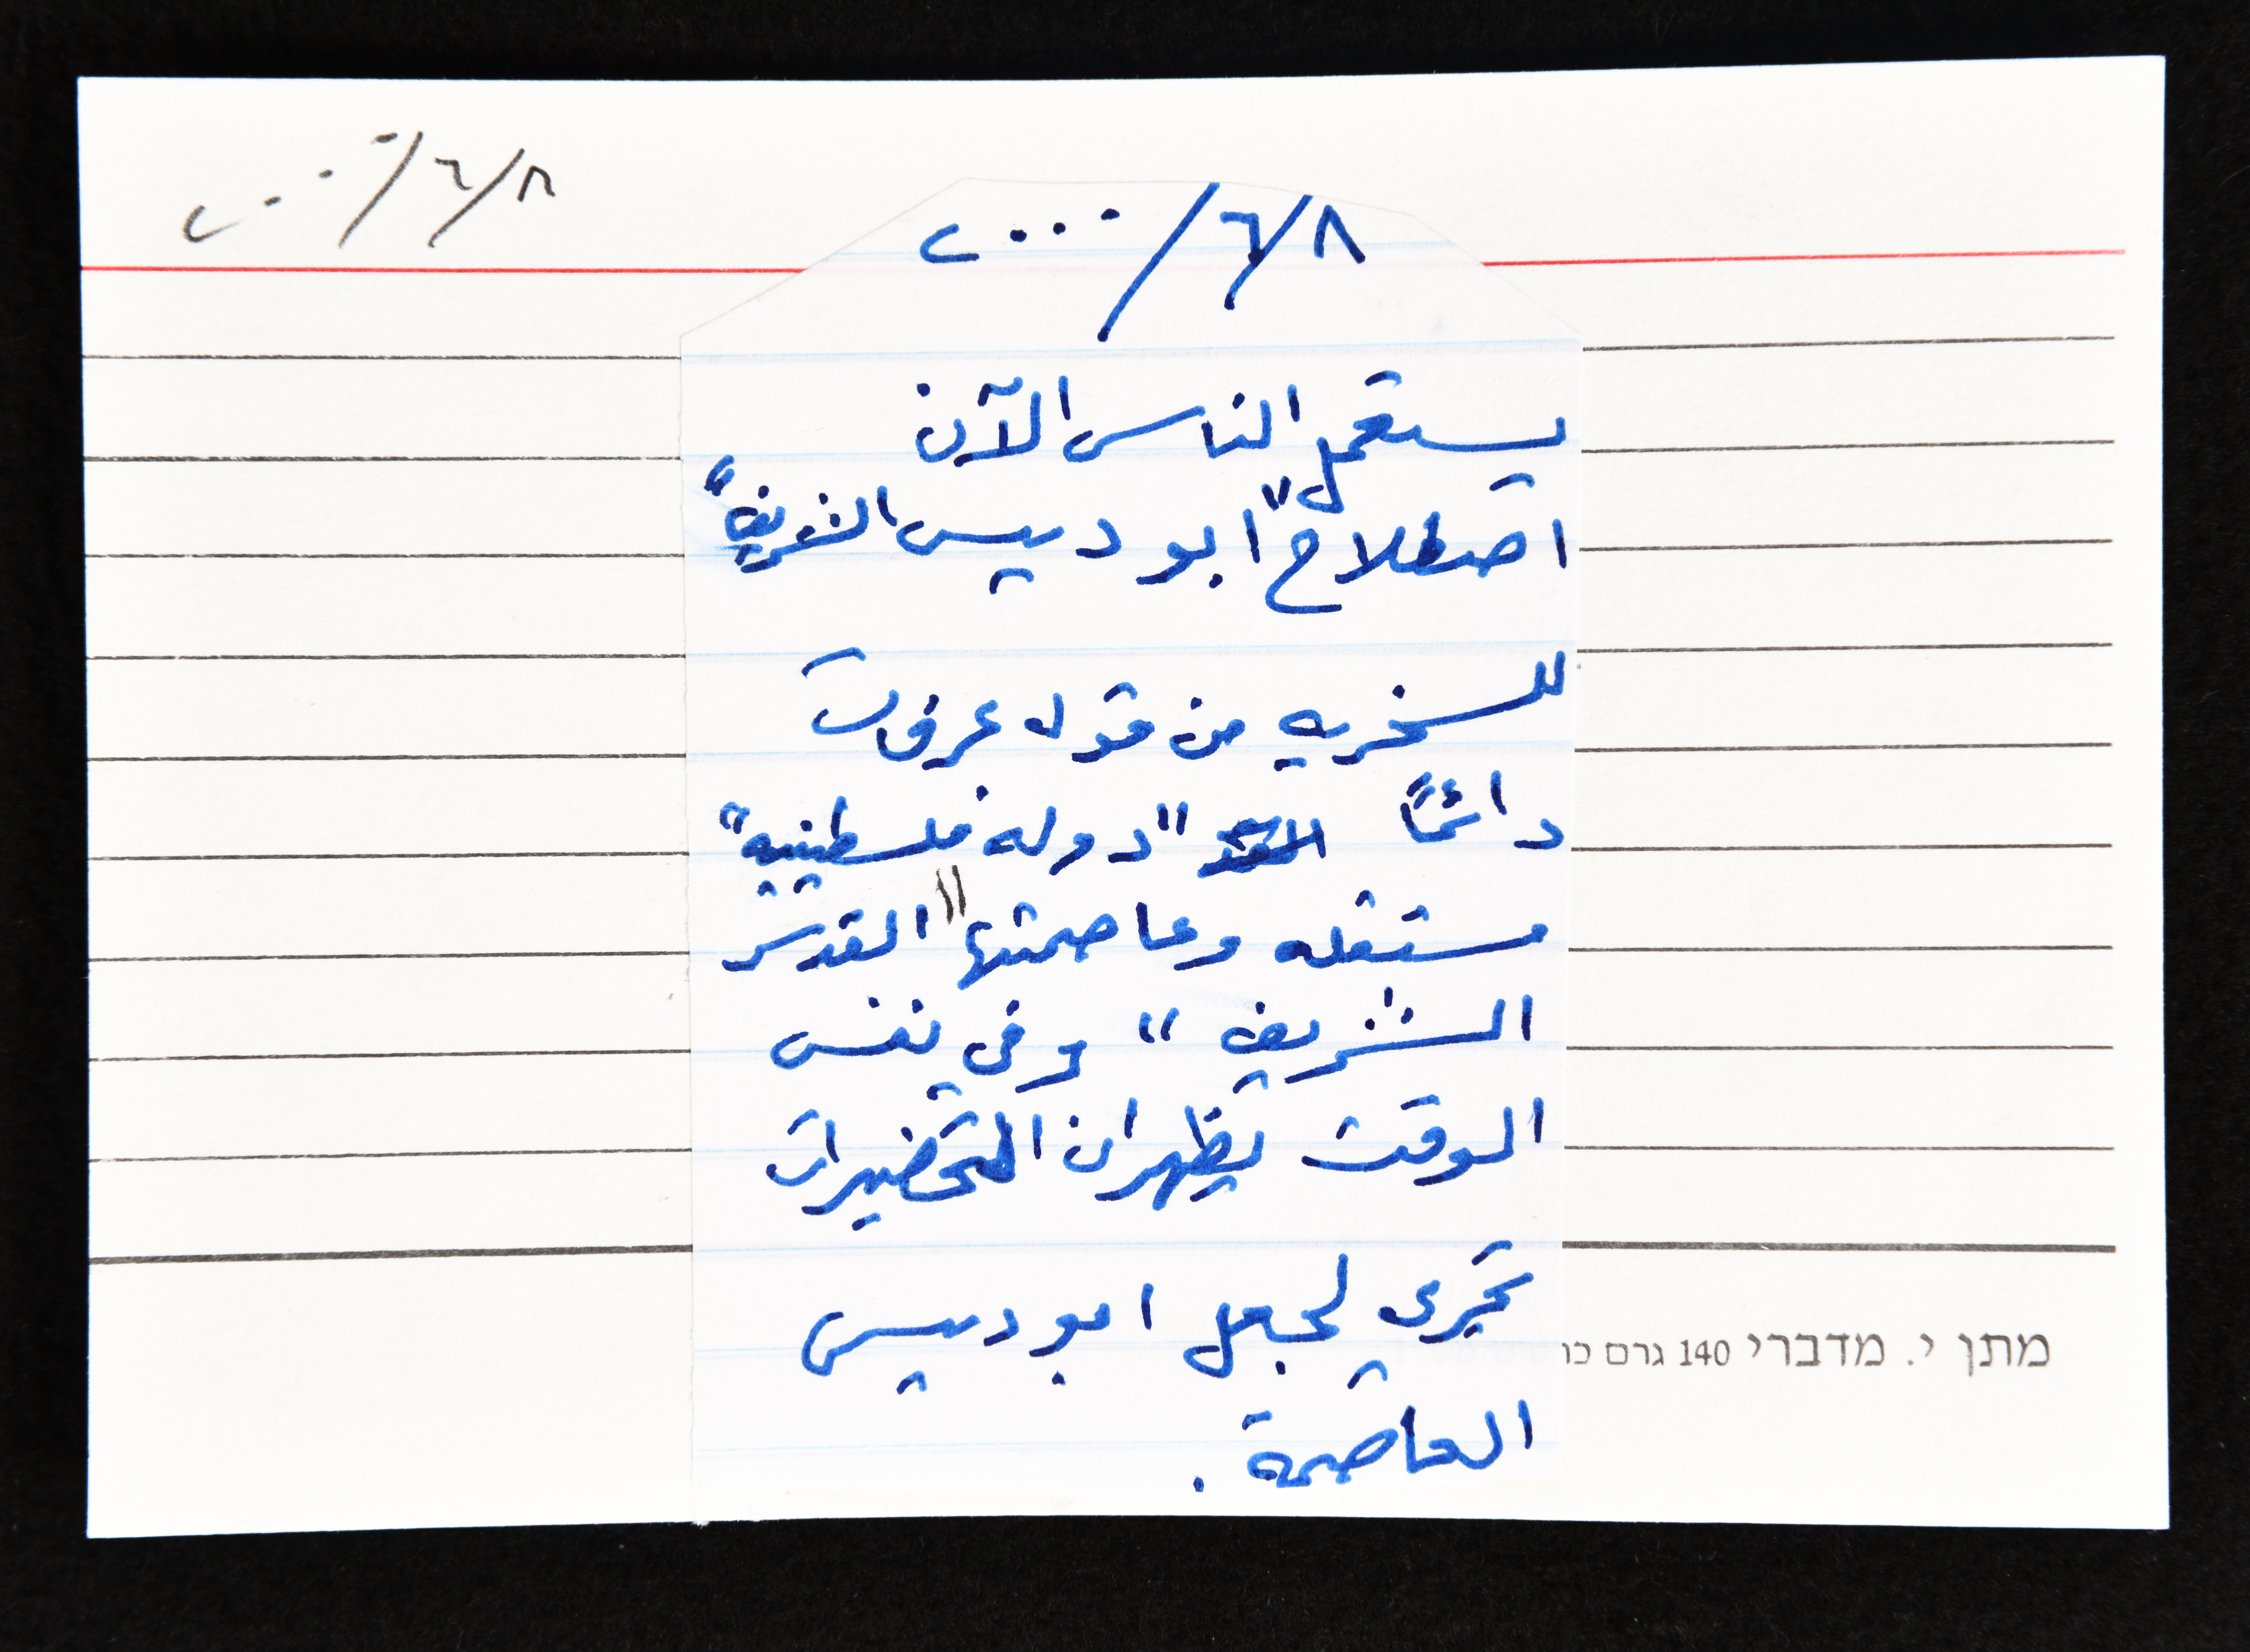 ٨/٦/٢٠٠٠
٨/٦/٢٠٠٠
يستعمل الناس الآن
اصطلاح "ابو ديس الشريف"
للسخريه من قول عرفات
دائماً "دوله فلسطينية"
مستقله وعاصمتها "القدس
الشريف" وفي نفس
الوقت يظهر ان التحضيرات
تجري لجعل ابو ديس
العاصمة .
מתן י. מדברי 140 גרם